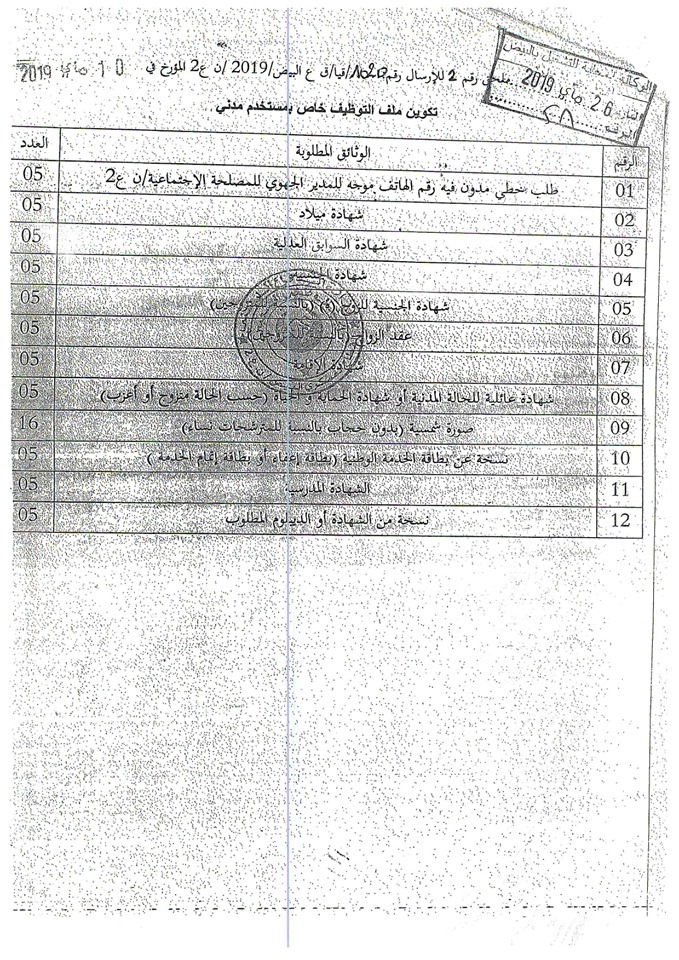 الوكالة المحلية للتشغيل بالبيض
26 ماي 2019
ملحق رقم 2 للإرسال رقم /قيا/ق ع البيض/2019 /ن ع2 المؤرخ في 10 ماي 2019
تكوين ملف التوظيف خاص بمستخدم مدني
الرقم الوثائق المطلوبة العدد
01 طلب خطي مدون فيه رقم الهاتف موجه للمدير الجهوي للمصلحة الإجتماعية/ن ع2 05
02 شهادة ميلاد 05
03 شهادة السوابق العدلية 05
04 شهادة الجنسية 05
05 شهادة الجنسية 05
06 عقد الزواج 05
07 شهادة الإقامة 05
08 شهادة عائلية للحالة المدنية أو شهادة الحماية و الحياة (حسب الحالة متزوج أو أعزب) 05
09 صورة شمسية (بدون حجاب بالنسبة للمترشحات نساء) 16
10 نسخة عن بطاقة الخدمة الوطنية (بطاقة إعفاء أو بطاقة إتمام الخدمة ) 05
11 الشهادة المدرسية 05
12 نسخة من الشهادة أو الديبلوم المطلوب 05